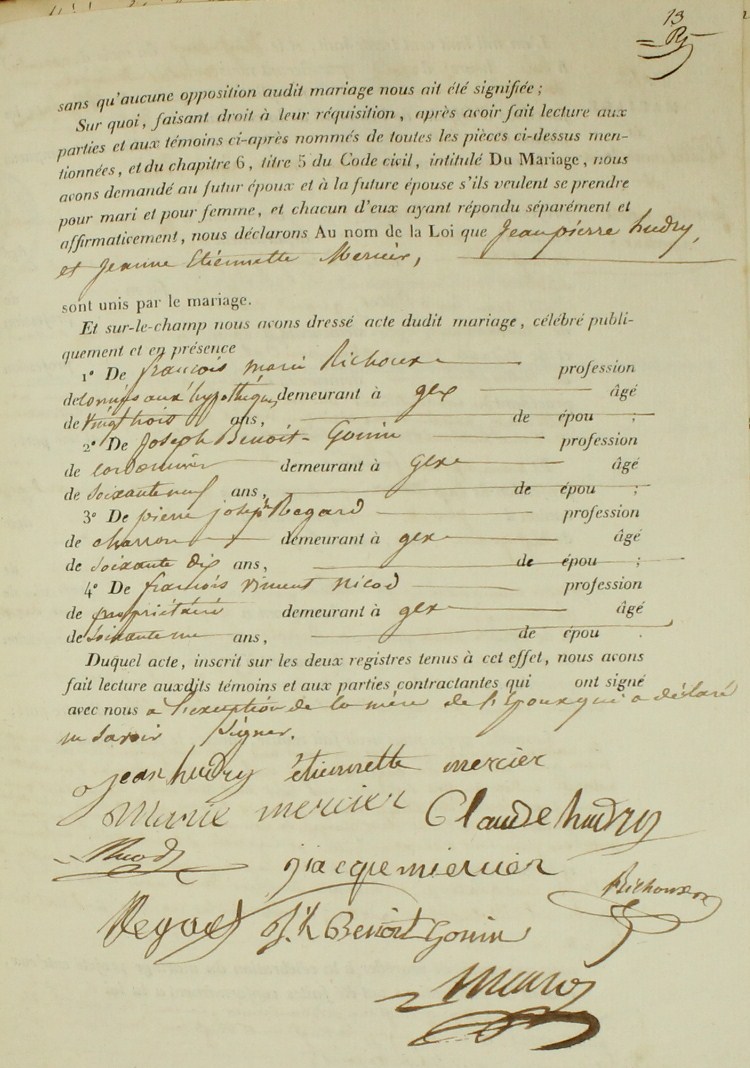 13
sans qu'aucune opposition audit mariage nous ait été signifiée ;
Sur quoi, faisant droit à leur réquisition, après avoir fait lecture aux
parties et aux témoins ci-après nommés de toutes les pièces ci-dessus men-
tionnées, et du chapitre 6, titre 5 du Code civil, intitulé Du Mariage, nous
avons demandé au futur époux et à la future épouse s'ils veulent se prendre
pour mari et pour femme, et chacun d'eux ayant répondu séparément et
affirmativement, nous déclarons Au nom de la Loi que Jean pierre hudry,
et Jeanne Etiennette Mercier,
sont unis par le mariage.
Et sur-le-champ nous avons dressé acte dudit mariage, célébré publi-
quement et en présence
1º De françois marie Richoux profession
de commis aux hypothèques, demeurant à gex âgé
de vingt trois ans, de épou ;
2º De Joseph Benoit Gonin profession
de cordonnier demeurant à Gex âgé
de soixante neuf ans, de épou ;
3º De pierre joseph Regard profession
de charron demeurant à gex âgé
de soixante dix ans, de épou ;
4º De françois vincent nicod profession
de propriétaire demeurant à gex âgé
de soixante ans, de épou .
Duquel acte, inscrit sur les deux registres tenus à cet effet, nous avons
fait lecture auxdits témoins et aux parties contractantes qui ont signé
avec nous a l'exception de la mère de l'Epoux qui a déclaré
ne savoir signer.
jean hudry étiennette mercier
Marie mercier Claude hudry
Nicod jacque miercier
Richoux
Regard Jh Benoit Gonin